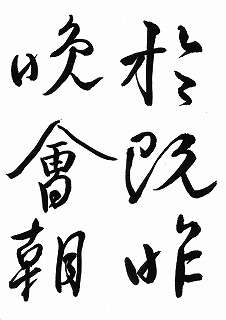 於既昨
晩會朝